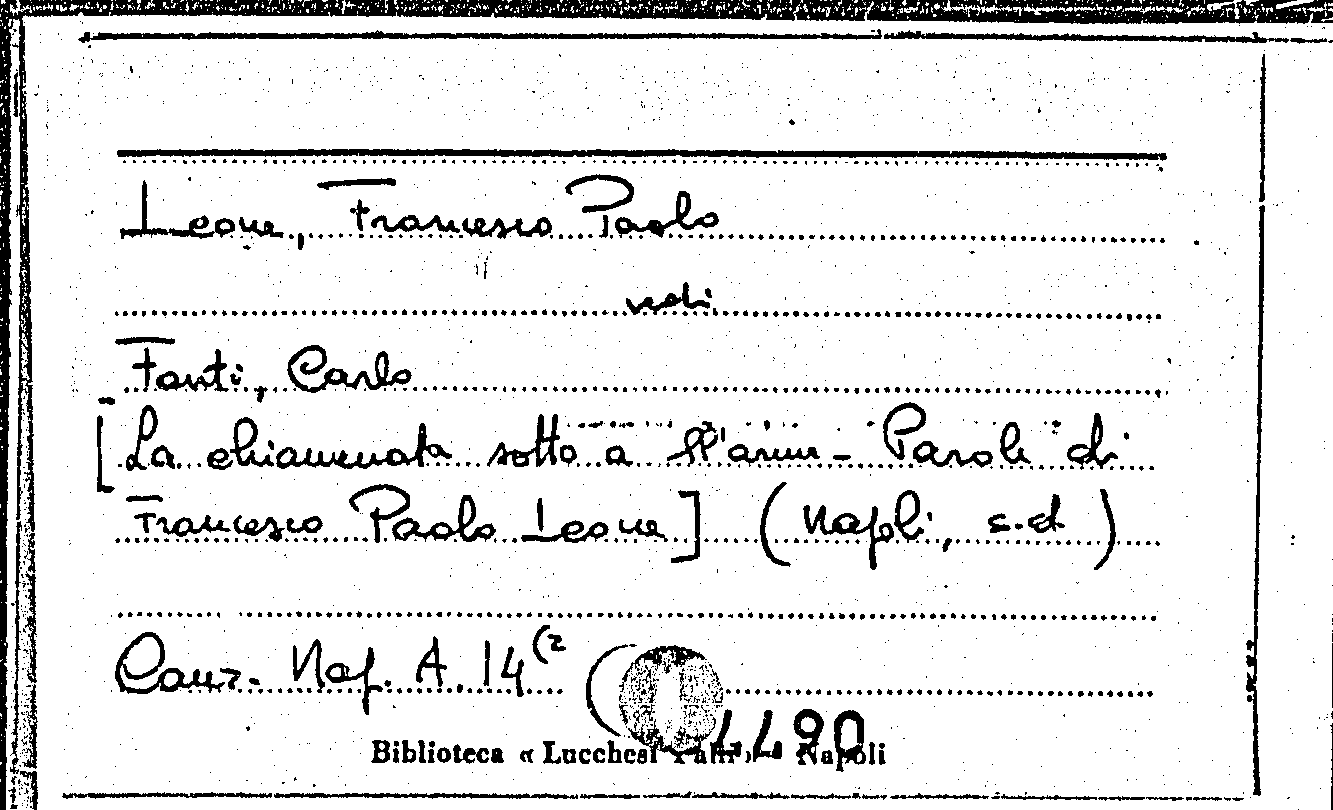 Leone, Francesco Paolo
vedi
Fanti, Carlo
[La chiammata sotto a ll'arme - Parole di
Francesco Paolo Leone] (Napoli, s.d.)
Canz. Nap. A. 14 (2
Biblioteca « Lucchesi Palli » - Napoli